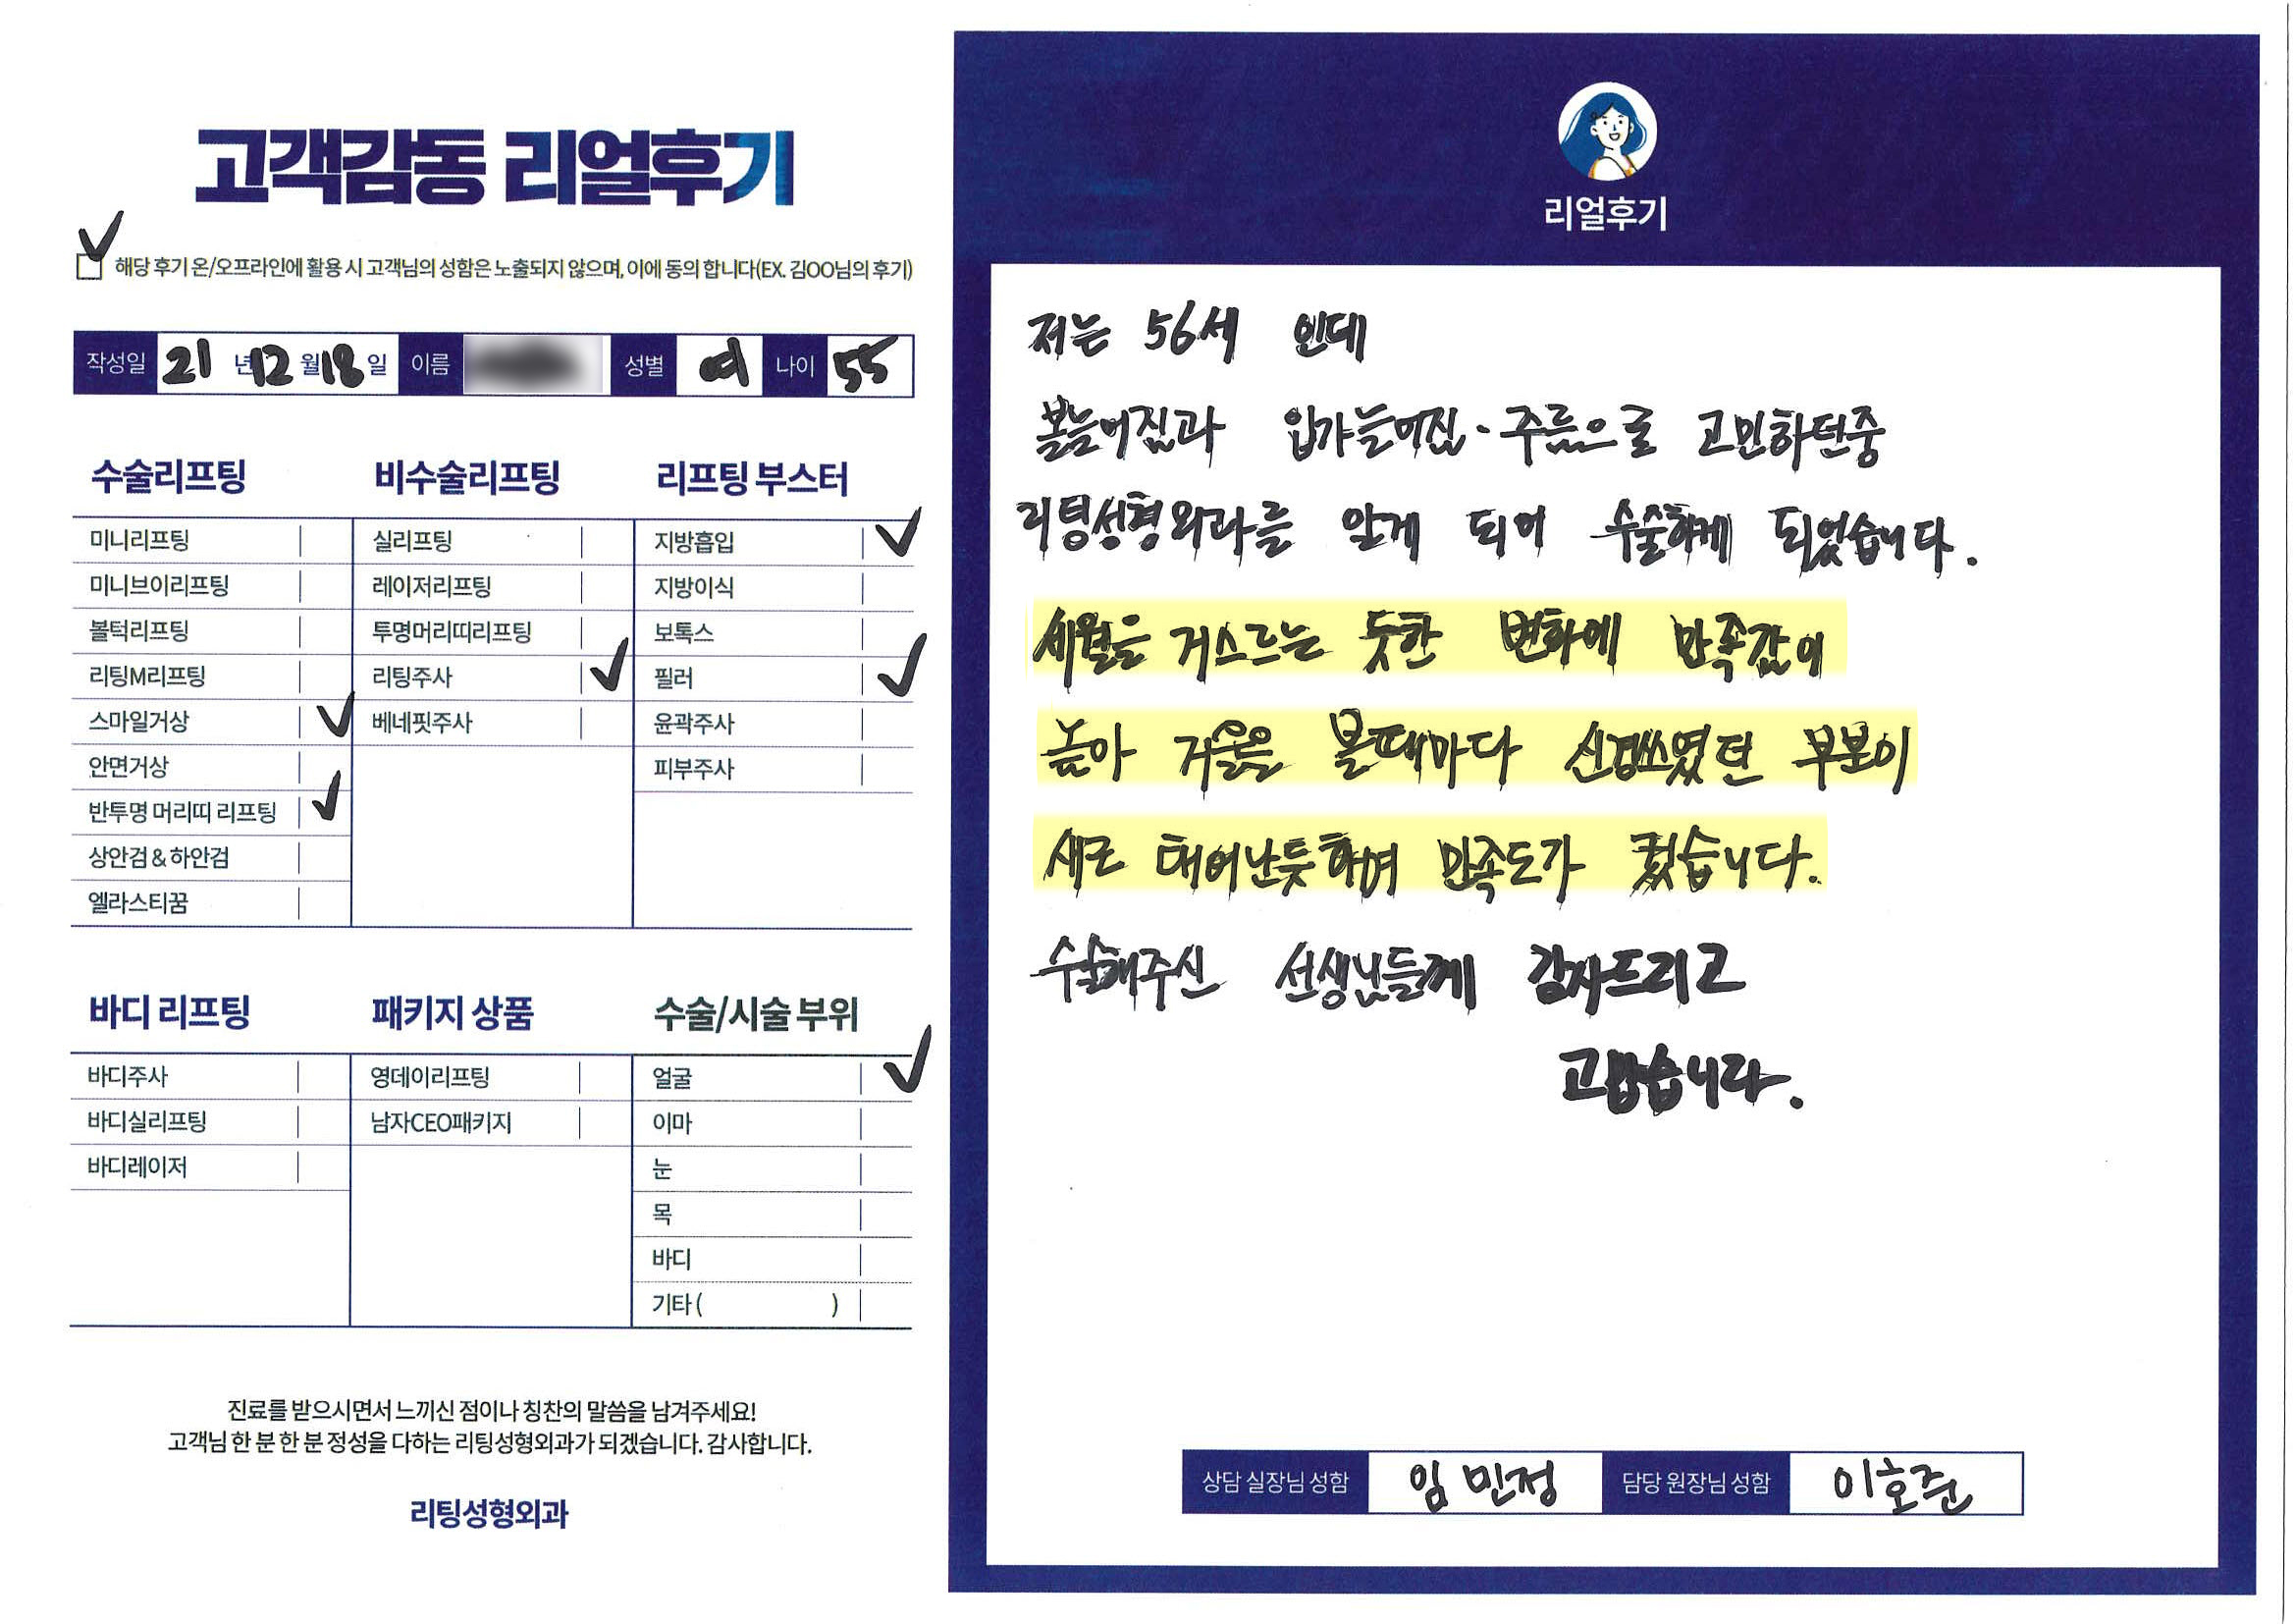 고객감동 리얼후기
해당 후기 온/오프라인에 활용 시 고객님의 성함은 노출되지 않으며, 이에 동의 합니다(EX. 김OO님의 후기)
작성일 21 년 12 월 18 일 이름 성별 여 나이 55
수술리프팅
미니리프팅
미니브이리프팅
볼턱리프팅
리팅M리프팅
스마일거상
안면거상
반투명 머리띠 리프팅
상안검 & 하안검
엘라스티꿈
비수술리프팅
실리프팅
레이저리프팅
투명머리띠리프팅
리팅주사
베네핏주사
리프팅 부스터
지방흡입
지방이식
보톡스
필러
윤곽주사
피부주사
바디 리프팅
바디주사
바디실리프팅
바디레이저
패키지 상품
영데이리프팅
남자CEO패키지
수술/시술 부위
얼굴
이마
눈
목
바디
기타 ( )
진료를 받으시면서 느끼신 점이나 칭찬의 말씀을 남겨주세요!
고객님 한 분 한 분 정성을 다하는 리팅성형외과가 되겠습니다. 감사합니다.
리팅성형외과
리얼후기
저는 56세 인데
볼늘어짐과 입가늘어짐·주름으로 고민하던중
리팅성형외과를 알게 되어 수술하게 되었습니다.
세월을 거스르는 듯한 변화에 만족감이
높아 거울을 볼때마다 신경쓰였던 부분이
새로 태어난듯하여 만족도가 컸습니다.
수술해주신 선생님들께 감사드리고
고맙습니다.
상담 실장님 성함 임민정 담당 원장님 성함 이호준